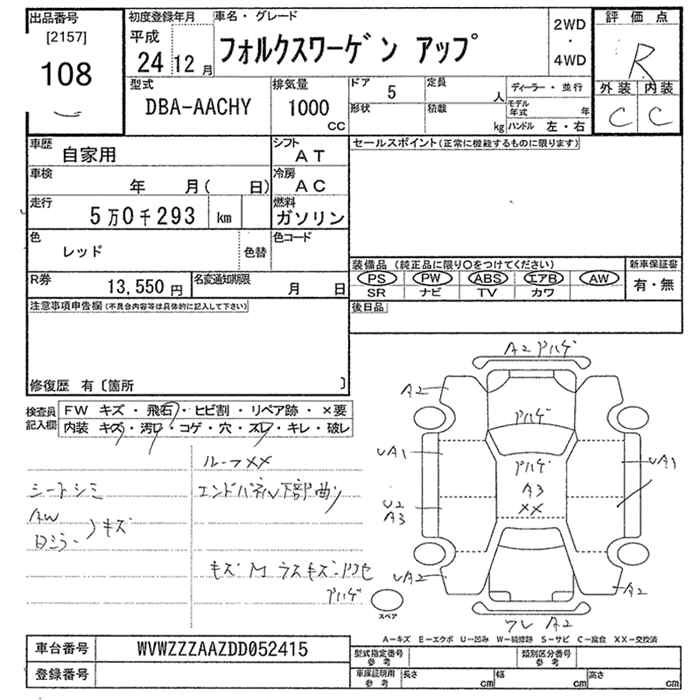 出品番号
[2157]
108
初度登録年月
平成
24 12 月
車名・グレード
フォルクスワーゲン アップ
2WD
・
4WD
評価点
R
外装 内装
C C
型式
DBA-AACHY
排気量
1000
CC
ドア 5
定員
人
形状
積載
kg
ディーラー・並行
モデル年式
年
ハンドル 左・右
車歴
自家用
シフト
AT
車検
年 月( 日)
冷房
AC
走行
5万0千293 km
燃料
ガソリン
色
レッド
色替
色コード
R券
13,550 円
名変通知期限
月 日
セールスポイント(正常に機能するものに限ります)
装備品(純正品に限り○をつけてください)
PS PW ABS エアB AW
SR ナビ TV カワ
新車保証書
有・無
後日品
注意事項申告欄(不具合内容等は具体的に記入して下さい)
修復歴 有〔箇所 〕
検査員記入欄
FW キズ・飛石・ヒビ割・リペア跡・×要
内装 キズ・汚レ・コゲ・穴・スレ・キレ・破レ
ルーフXX
シートシミ
エンドパネル下部曲り
AW
Dミラー
)キズ
キズ M
ハゲ
A2 アハゲ
A2
アハゲ
UA1
アハゲ
A3
XX
UA1
U2
A3
UA2
A2
A2
スペア
A-キズ E-エクボ U-凹み W-補修跡 S-サビ C-腐食 XX-交換済
車台番号
WVWZZZAAZDD052415
登録番号
型式指定番号
参考
類別区分番号
参考
車庫証明用
参考
長さ cm
幅 cm
高さ cm